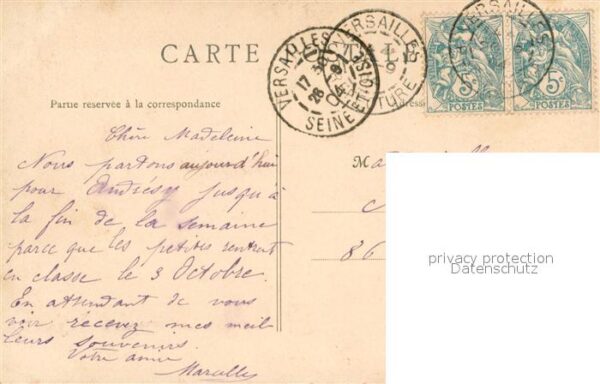 CARTE
Partie réservée à la correspondance
VERSAILLES
17 30
28 9
04
SEINE ET OISE
VERSAILLES
VERSAILLES
5c
POSTES
5c
POSTES
Chère Madeleine
Nous partons aujourd'hui
pour Andrésy jusqu'à
la fin de la semaine
parce que les petites rentrent
en classe le 3 Octobre.
En attendant de vous
voir recevez mes meil
leurs souvenirs.
Votre amie
Marcelle
Ma
86
privacy protection
Datenschutz